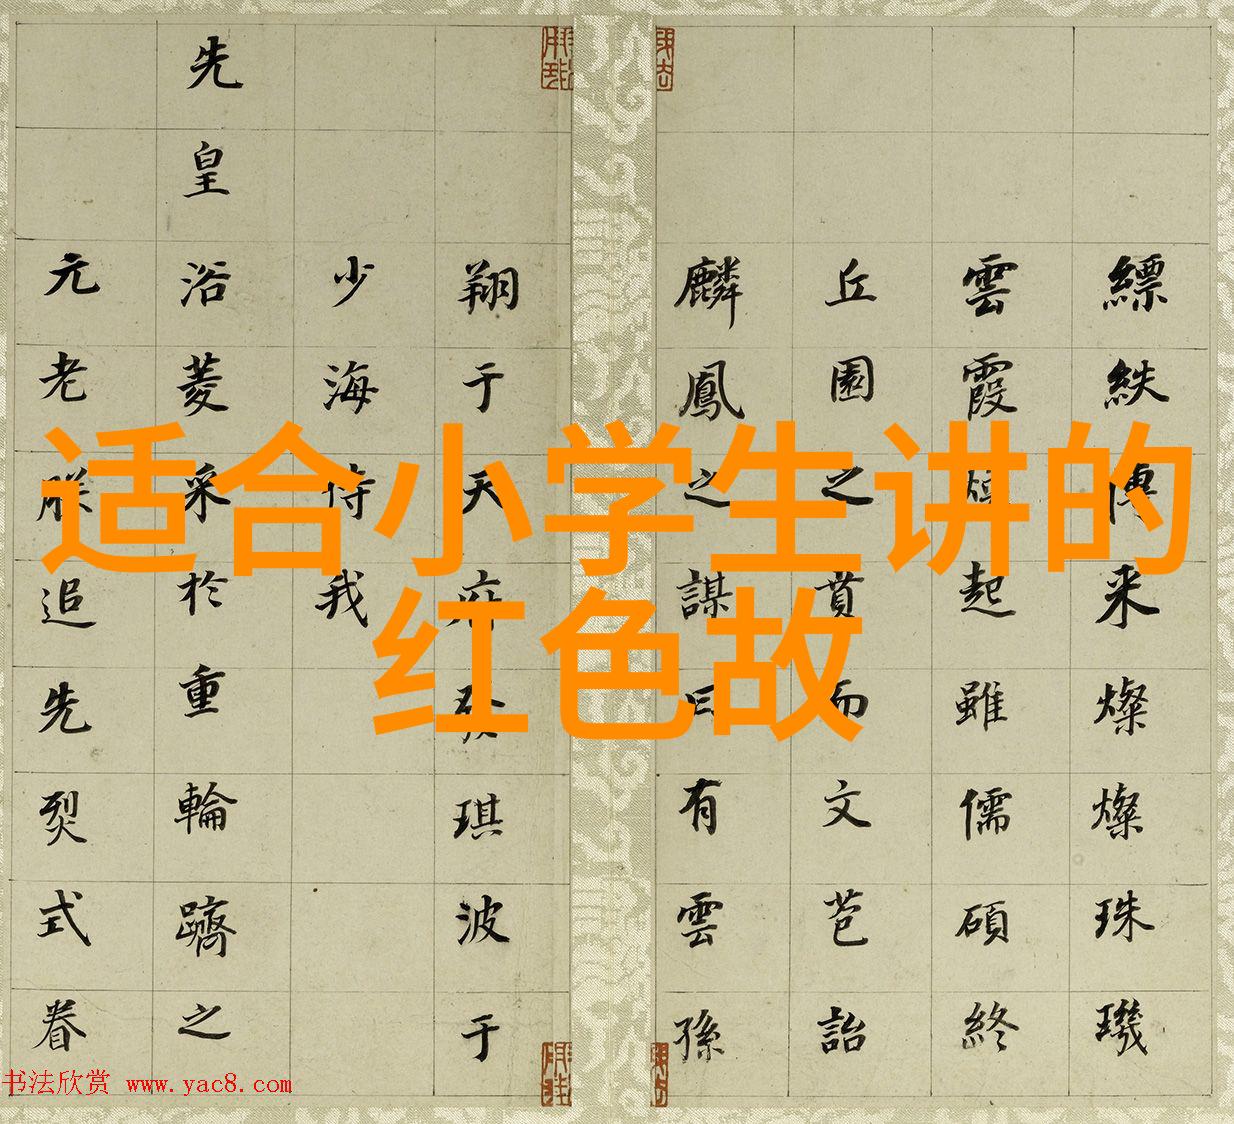 适合小学生讲的
红色故
縹紩傳来燦燦珠璣
雲霞起雖儒碩終
丘園之賁而文苞詒
麟鳳之謀曰有雲孫
翔于天府發琪波于
少海侍我
先皇浴菱采於重輪躋之
元老朕追先烈式眷
书法欣赏 www.yac8.com